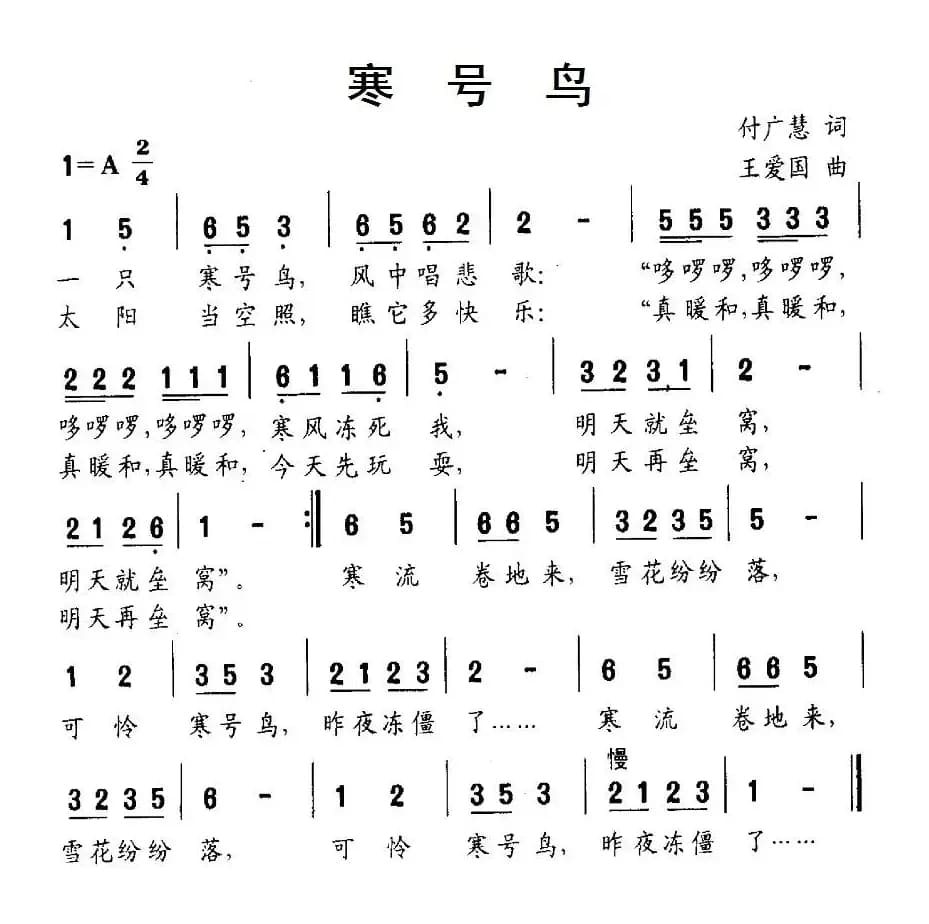 寒号鸟
付广慧 词
1=A 2/4
王爱国 曲
1 5 | 6 5 3 | 6 5 6 2 | 2 - | 5 5 5 3 3 3 |
一只 寒号鸟, 风中唱悲歌: “哆啰啰,哆啰啰,
太阳 当空照, 瞧它多快乐: “真暖和,真暖和,
2 2 2 1 1 1 | 6 1 1 6 | 5 - | 3 2 3 1 | 2 - |
哆啰啰,哆啰啰, 寒风冻死 我, 明天就垒 窝,
真暖和,真暖和, 今天先玩 耍, 明天再垒 窝,
2 1 2 6 | 1 - :‖ 6 5 | 6 6 5 | 3 2 3 5 | 5 - |
明天就垒 窝”。 寒流 卷地来, 雪花纷纷 落,
明天再垒 窝”。
1 2 | 3 5 3 | 2 1 2 3 | 2 - | 6 5 | 6 6 5 |
可怜 寒号鸟, 昨夜冻僵 了…… 寒流 卷地来,
慢
3 2 3 5 | 6 - | 1 2 | 3 5 3 | 2 1 2 3 | 1 - ‖
雪花纷纷 落, 可怜 寒号鸟, 昨夜冻僵 了……